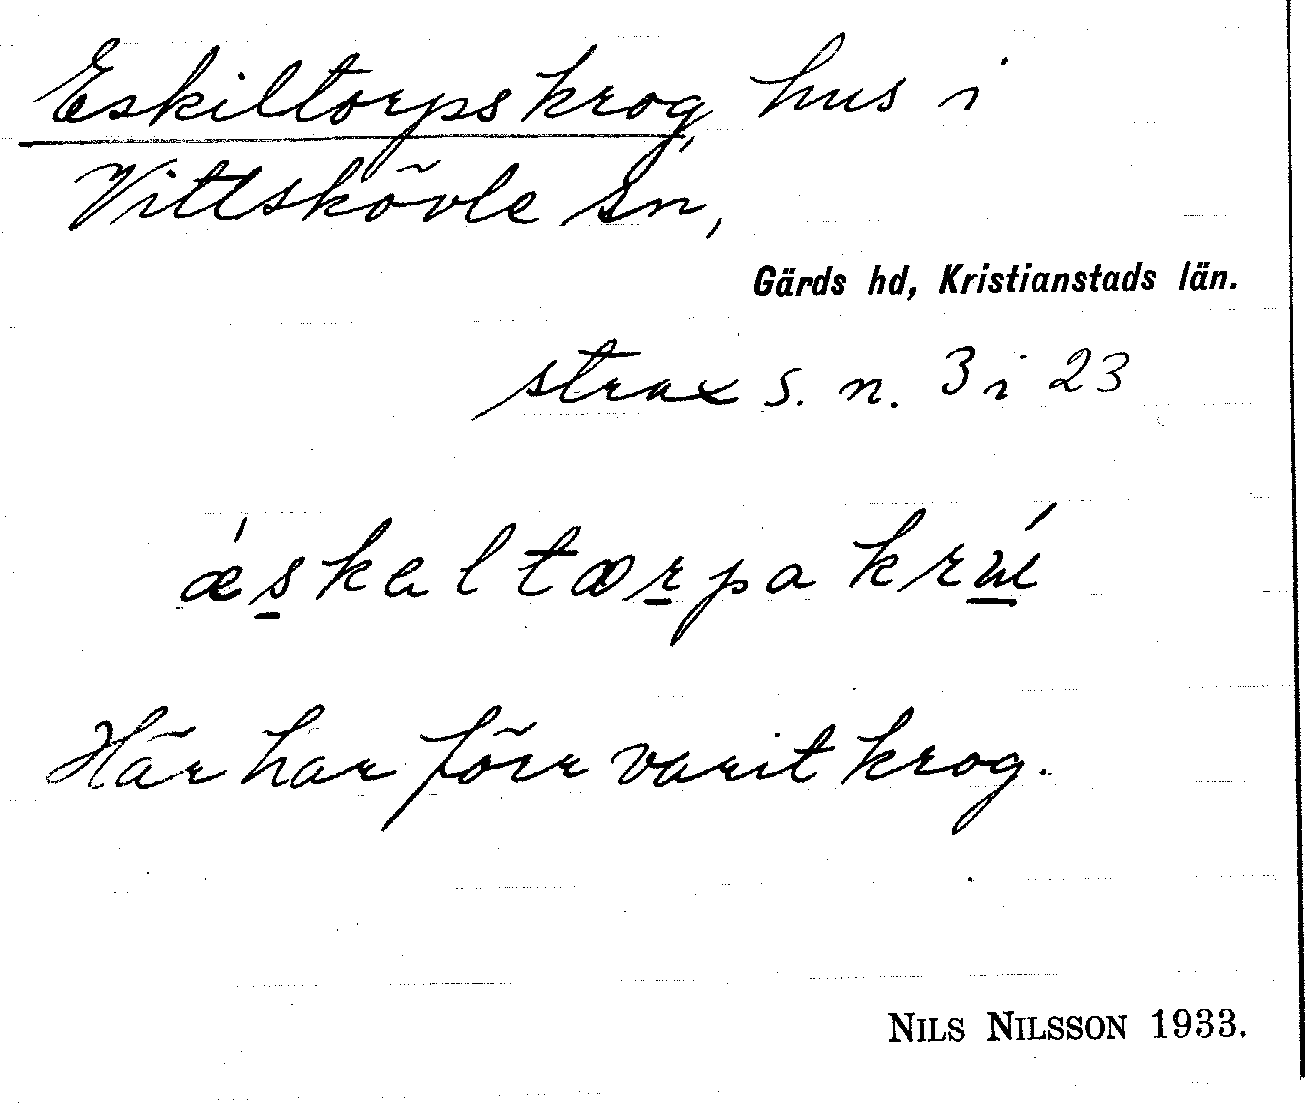 Eskiltorpskrog, hus i
Vittskövle sn,
Gärds hd, Kristianstads län.
strax s. n. 3 i 23
ǽskaltærpa krɯ́
Här har förr varit krog.
NILS NILSSON 1933.